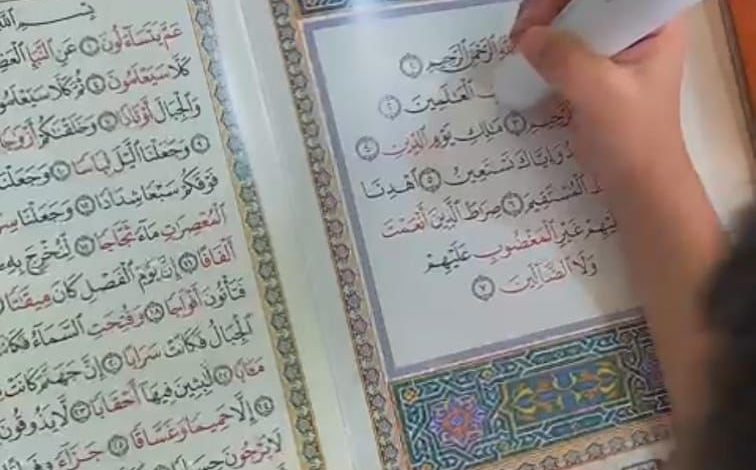 الرَّحْمَٰنِ الرَّحِيمِ ۝١
الْعَٰلَمِينَ ۝٢
الرَّحِيمِ ۝٣ مَٰلِكِ يَوْمِ الدِّينِ ۝٤
وَإِيَّاكَ نَسْتَعِينُ ۝٥ اهْدِنَا
الْمُسْتَقِيمَ ۝٦ صِرَٰطَ الَّذِينَ أَنْعَمْتَ
غَيْرِ الْمَغْضُوبِ عَلَيْهِمْ
وَلَا الضَّالِّينَ ۝٧
عَمَّ يَتَسَاءَلُونَ ۝١ عَنِ النَّبَإِ
كَلَّا سَيَعْلَمُونَ ۝٤ ثُمَّ كَلَّا سَيَعْلَمُونَ
وَالْجِبَالَ أَوْتَادًا ۝٧ وَخَلَقْنَٰكُمْ أَزْوَٰجًا
۝٩ وَجَعَلْنَا الَّيْلَ لِبَاسًا ۝١٠ وَجَعَلْنَا
فَوْقَكُمْ سَبْعًا شِدَادًا ۝١٢ وَجَعَلْنَا
الْمُعْصِرَٰتِ مَاءً ثَجَّاجًا ۝١٤ لِّنُخْرِجَ بِهِ
أَلْفَافًا ۝١٦ إِنَّ يَوْمَ الْفَصْلِ كَانَ مِيقَٰتًا
فَتَأْتُونَ أَفْوَاجًا ۝١٨ وَفُتِحَتِ السَّمَاءُ فَكَانَتْ
الْجِبَالُ فَكَانَتْ سَرَابًا ۝٢٠ إِنَّ جَهَنَّمَ كَانَتْ
مَـَٔابًا ۝٢٢ لَّٰبِثِينَ فِيهَا أَحْقَابًا ۝٢٣ لَّا يَذُوقُونَ
۝٢٤ إِلَّا حَمِيمًا وَغَسَّاقًا ۝٢٥ جَزَاءً
لَا يَرْجُونَ حِسَابًا